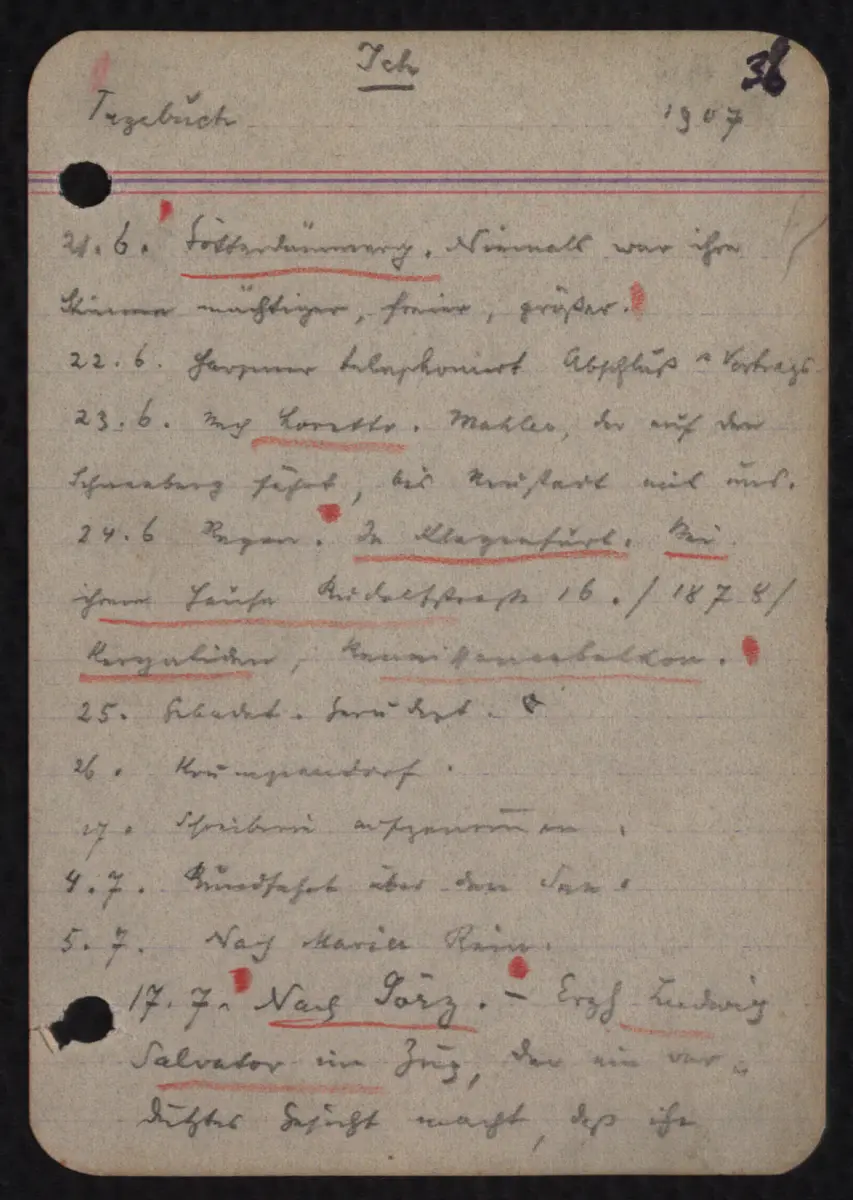 Ich
36
Tagebuch 1907
21. 6. Götterdämmerg. Niemals war ihre
Stimme mächtiger, freier, größer.
22. 6. telephoniert Abschluß Vortrags
23. 6. Nach Loretto. Mahler, der auf den
Schneeberg fährt, bis Neustadt mit uns.
24. 6 Regen. In Klagenfurt. Bei
ihrem Hause Rudolfstraße 16. / 1878/
Karyatiden, Renaissancebalkon.
25. Gebadet. Gerudert.
26. Krumpendorf.
27. Schreiberei aufgenommen.
4. 7. Rundfahrt über den See.
5. 7. Nach Maria Rain.
17. 7. Nach Görz. – Erzh Ludwig
Salvator im Zug, der ein ver=
dutztes Gesicht macht, daß ihn